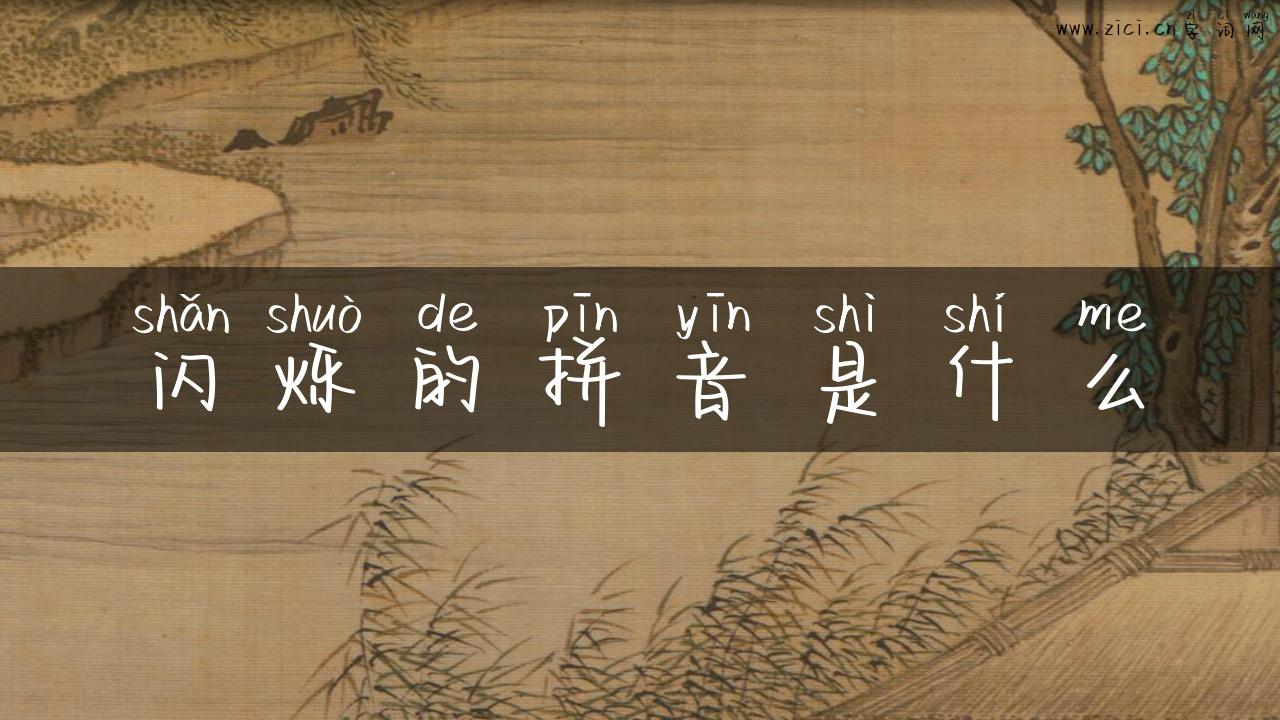 zì cí wǎng
www.zici.cn 字 词 网
shǎn shuò de pīn yīn shì shí me
闪 烁 的 拼 音 是 什 么